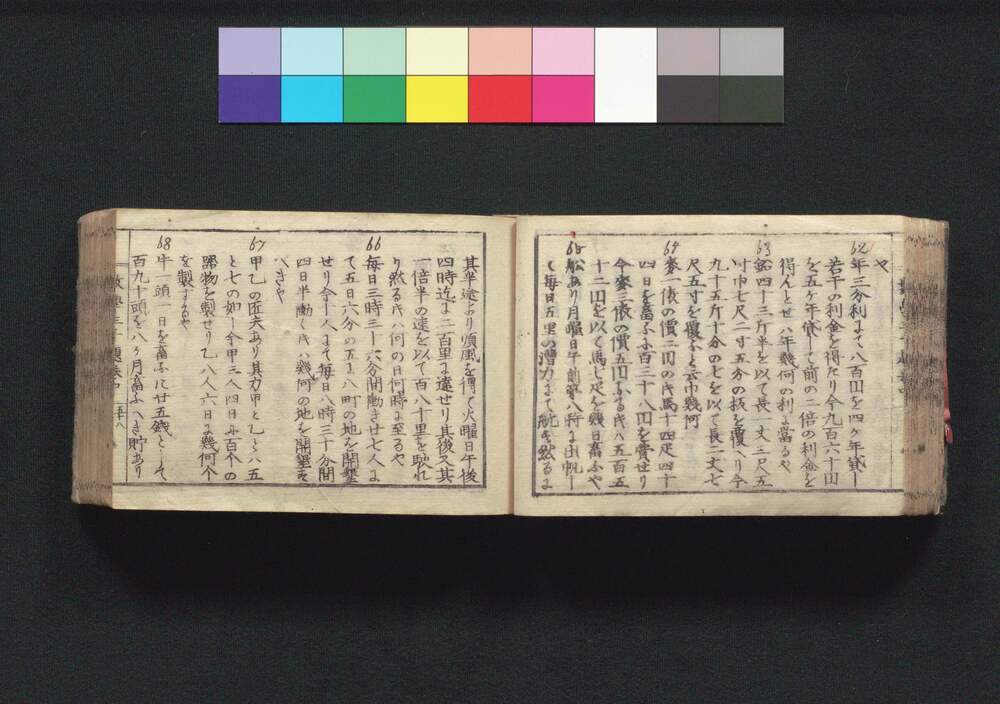 や
62 年三分利にて八百円を四ヶ年貸し
若干の利金を得たり今九百六十円
を五ヶ年貸して前の二倍の利金を
得んとせハ年幾何の利に當るや
63 鉛四十三斤半を以て長一丈三尺五
寸巾七尺二寸五分の板を覆へり今
九十五斤十分の七を以て長二丈七
尺五寸を覆ふと云巾幾何
64 麥一俵の價二円の時馬十四疋四十
四日を畜ふに百三十八円を費せり
今麥三俵の價五円なる時ハ五百五
十二円を以て馬七疋を幾日畜ふや
65 船あり月曜日午前第八時に出帆し
て毎日五里の潜力にて航す然るに
其半途より順風を得て火曜日午後
四時迄に二百里に達せり其後又其
一倍半の速を以て百八十里を馳れ
り然る時ハ何の日何時に至るや
66 毎日三時三十六分間働き廿七人に
て五日六分の五に八町の地を開墾
せり今十人にて毎日八時三十分間
四日半働く時ハ幾何の地を開墾す
べきや
67 甲乙の匠夫あり其力甲と乙とハ五
と七の如し今甲三人四日に百个の
器物を製せり乙八人六日に幾何个
を製するや
68 牛一頭一日を畜ふに廿五銭として
百九十頭を八ヶ月畜ふべき貯あり